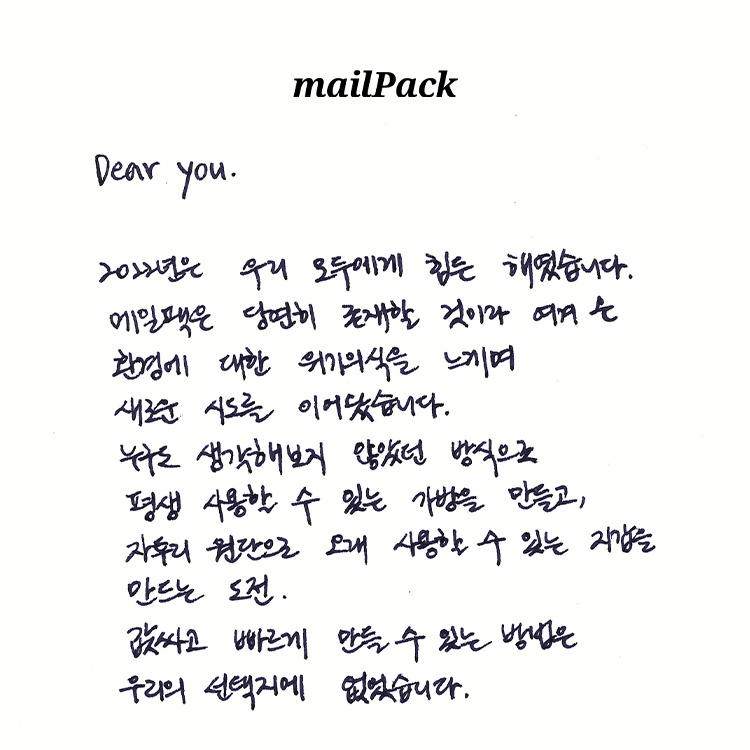 mailPack
Dear you.
2022년은 우리 모두에게 힘든 해였습니다.
메일팩은 당연히 존재할 것이라 여겨 온
환경에 대한 위기의식을 느끼며
새로운 시도를 이어갔습니다.
누구도 생각해보지 않았던 방식으로
평생 사용할 수 있는 가방을 만들고,
자투리 원단으로 오래 사용할 수 있는 지갑을
만드는 도전.
값싸고 빠르게 만들 수 있는 방법은
우리의 선택지에 없었습니다.